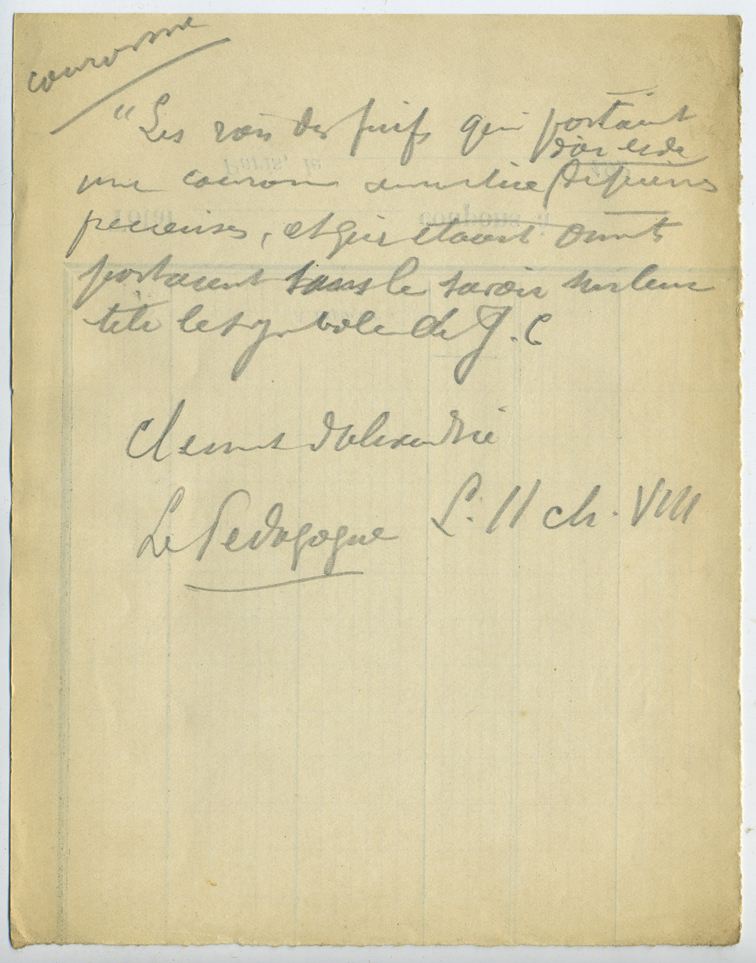 couronne
"Les rois des juifs qui portaient
d'or et de
une couronne (de pierres
precieuses, et qui étaient oints
portaient sans le savoir sur leur
tête le symbole de J. C
Clement d'Alexandrie
Le Pedagogue L. II ch. VIII